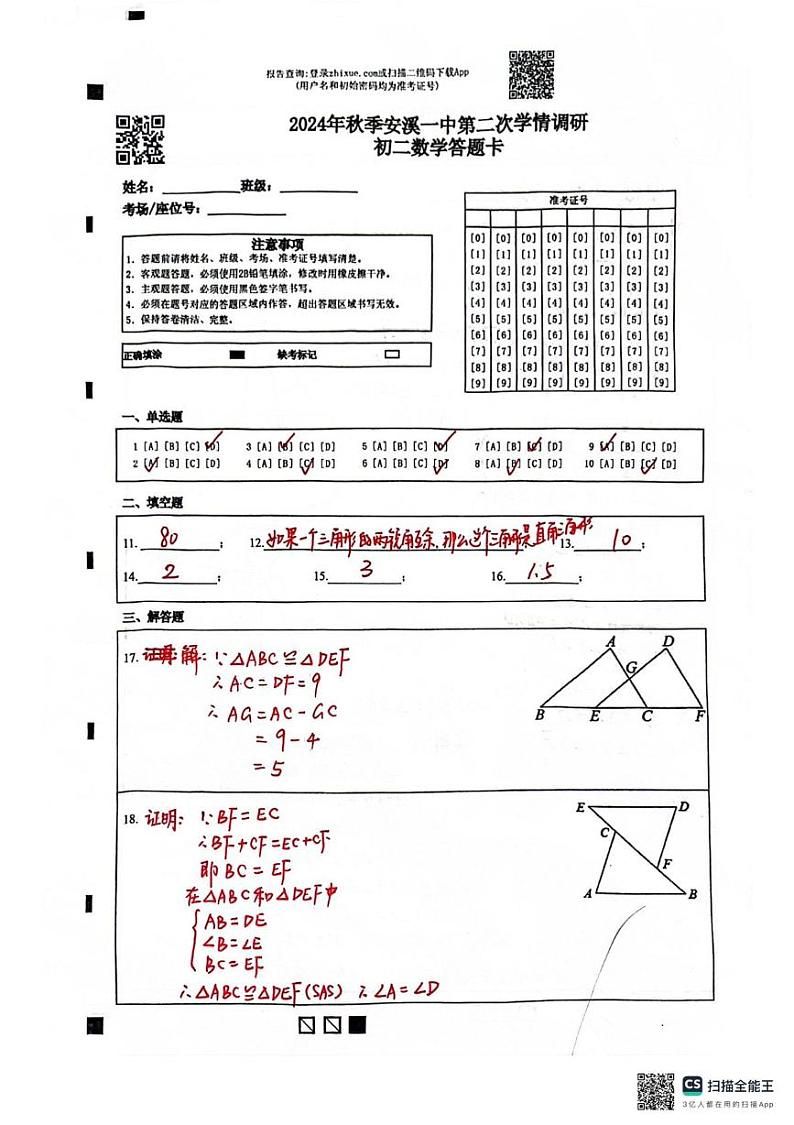 报告查询:登录zhixue.com或扫描二维码下载App
(用户名和初始密码均为准考证号)
2024年秋季安溪一中第二次学情调研
初二数学答题卡
姓名：
班级：
考场/座位号：
准考证号
[0] [0] [0] [0] [0] [0] [0] [0]
[1] [1] [1] [1] [1] [1] [1] [1]
[2] [2] [2] [2] [2] [2] [2] [2]
[3] [3] [3] [3] [3] [3] [3] [3]
[4] [4] [4] [4] [4] [4] [4] [4]
[5] [5] [5] [5] [5] [5] [5] [5]
[6] [6] [6] [6] [6] [6] [6] [6]
[7] [7] [7] [7] [7] [7] [7] [7]
[8] [8] [8] [8] [8] [8] [8] [8]
[9] [9] [9] [9] [9] [9] [9] [9]
注意事项
1. 答题前请将姓名、班级、考场、准考证号填写清楚。
2. 客观题答题，必须使用2B铅笔填涂，修改时用橡皮擦干净。
3. 主观题答题，必须使用黑色签字笔书写。
4. 必须在题号对应的答题区域内作答，超出答题区域书写无效。
5. 保持答卷清洁、完整。
正确填涂 缺考标记
一、单选题
1 [A] [B] [C] [D] 3 [A] [B] [C] [D] 5 [A] [B] [C] [D] 7 [A] [B] [C] [D] 9 [A] [B] [C] [D]
2 [A] [B] [C] [D] 4 [A] [B] [C] [D] 6 [A] [B] [C] [D] 8 [A] [B] [C] [D] 10 [A] [B] [C] [D]
二、填空题
11. 80 ; 12. 如果一个三角形的两锐角互余,那么这个三角形是直角三角形 13. 10 ;
14. 2 ; 15. 3 ; 16. 1.5 ;
三、解答题
17. 解：∵△ABC≌△DEF
∴AC=DF=9
∴AG=AC-GC
=9-4
=5
A D
G
B E C F
18. 证明：∵BF=EC
∴BF+CF=EC+CF
即BC=EF
在△ABC和△DEF中
AB=DE
∠B=∠E
BC=EF
∴△ABC≌△DEF(SAS) ∴∠A=∠D
E D
C
F
A B
CS 扫描全能王
3亿人都在用的扫描App